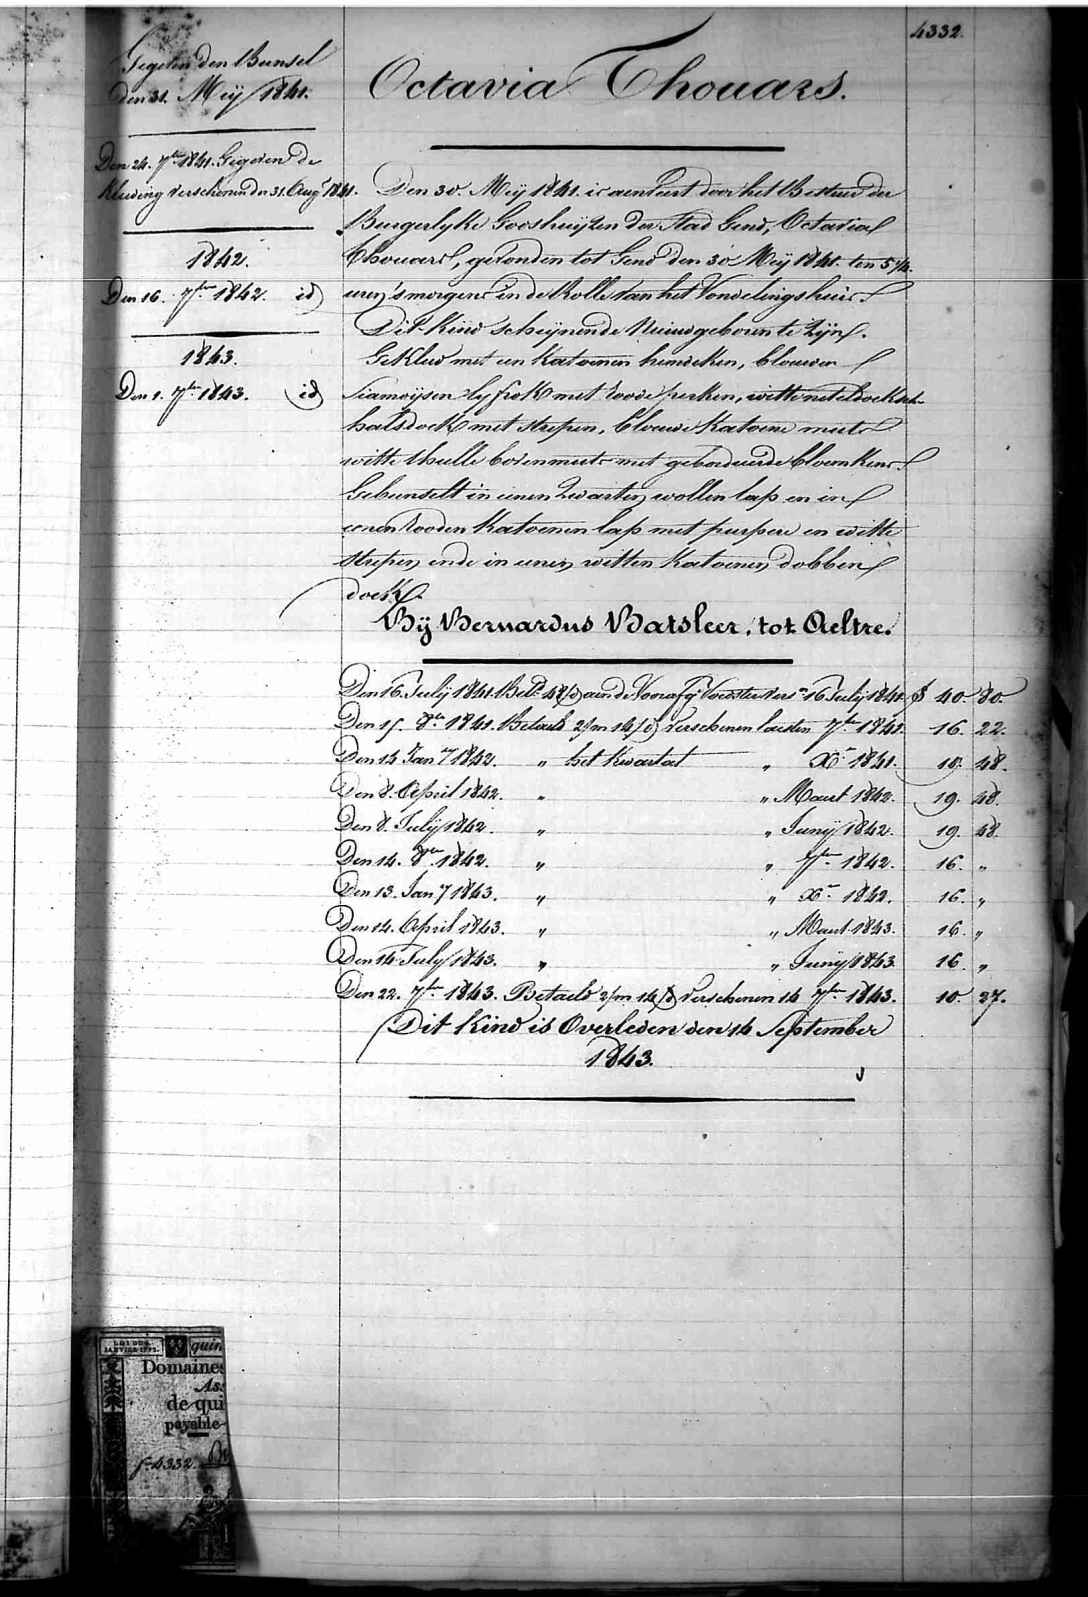 4332.
Gegeven den Bunsel
den 31. Meij 1841.
Den 24. 7ber 1841. Gegeven de
Kleeding verschenen den 31. Augt 1841.
1842.
Den 16. 7ber 1842. id
1843.
Den 1. 7ber 1843. id
Octavia Thouars.
Den 30. Meij 1841. is aenveert door het Bestuer der
Burgerlyke Godshuijzen der Stad Gend, Octavia
Thouars, gevonden tot Gend den 30 Meij 1841. ten 5 1/4
uren 's morgens in de Rolle van het Vondelingshuis.
Dit Kind scheijnende Nieuwgeboren te Zijn.
Gekleed met een Katoenen hemdeken, blauwen
Siamoijsen lyfrok met roode perken, witte neteldoeksche
halsdoek met strepen, blouwe Katoene muts
witte thulle bovenmuts met geborduerde bloemkens.
Gebunselt in eenen Zwarten wollen lap en in
eenen rooden Katoenen lap met purpere en witte
strepen ende in eenen witten Katoenen dobben
doek.
Bij Bernardus Batsleer, tot Aeltre.
Den 16 Julij 1841. Bet. aen de Voorzter 16 Julij 1841. 40. 80.
Den 15. 8br 1841. Betaeld 2/m 14/d verschenen 7ber 1841. 16. 22.
Den 14 Jany 1842. " het Kwartaal " Xr 1841. 19. 48.
Den 8. April 1842. " " Maert 1842. 19. 48.
Den 8. Julij 1842. " " Junij 1842. 19. 48.
Den 14. 8ber 1842. " " 7ber 1842. 16. "
Den 13. Jany 1843. " " Xr 1842. 16. "
Den 14. April 1843. " " Maert 1843. 16. "
Den 14 July 1843. " " Junij 1843 16. "
Den 22. 7ber 1843. Betaeld 2/m 14/d verschenen 14 7ber 1843. 10. 27.
Dit Kind is Overleden den 14 September
1843.
LOI DU
JANVIER
quin
Domaines
As
de qui
payable
f 4332.